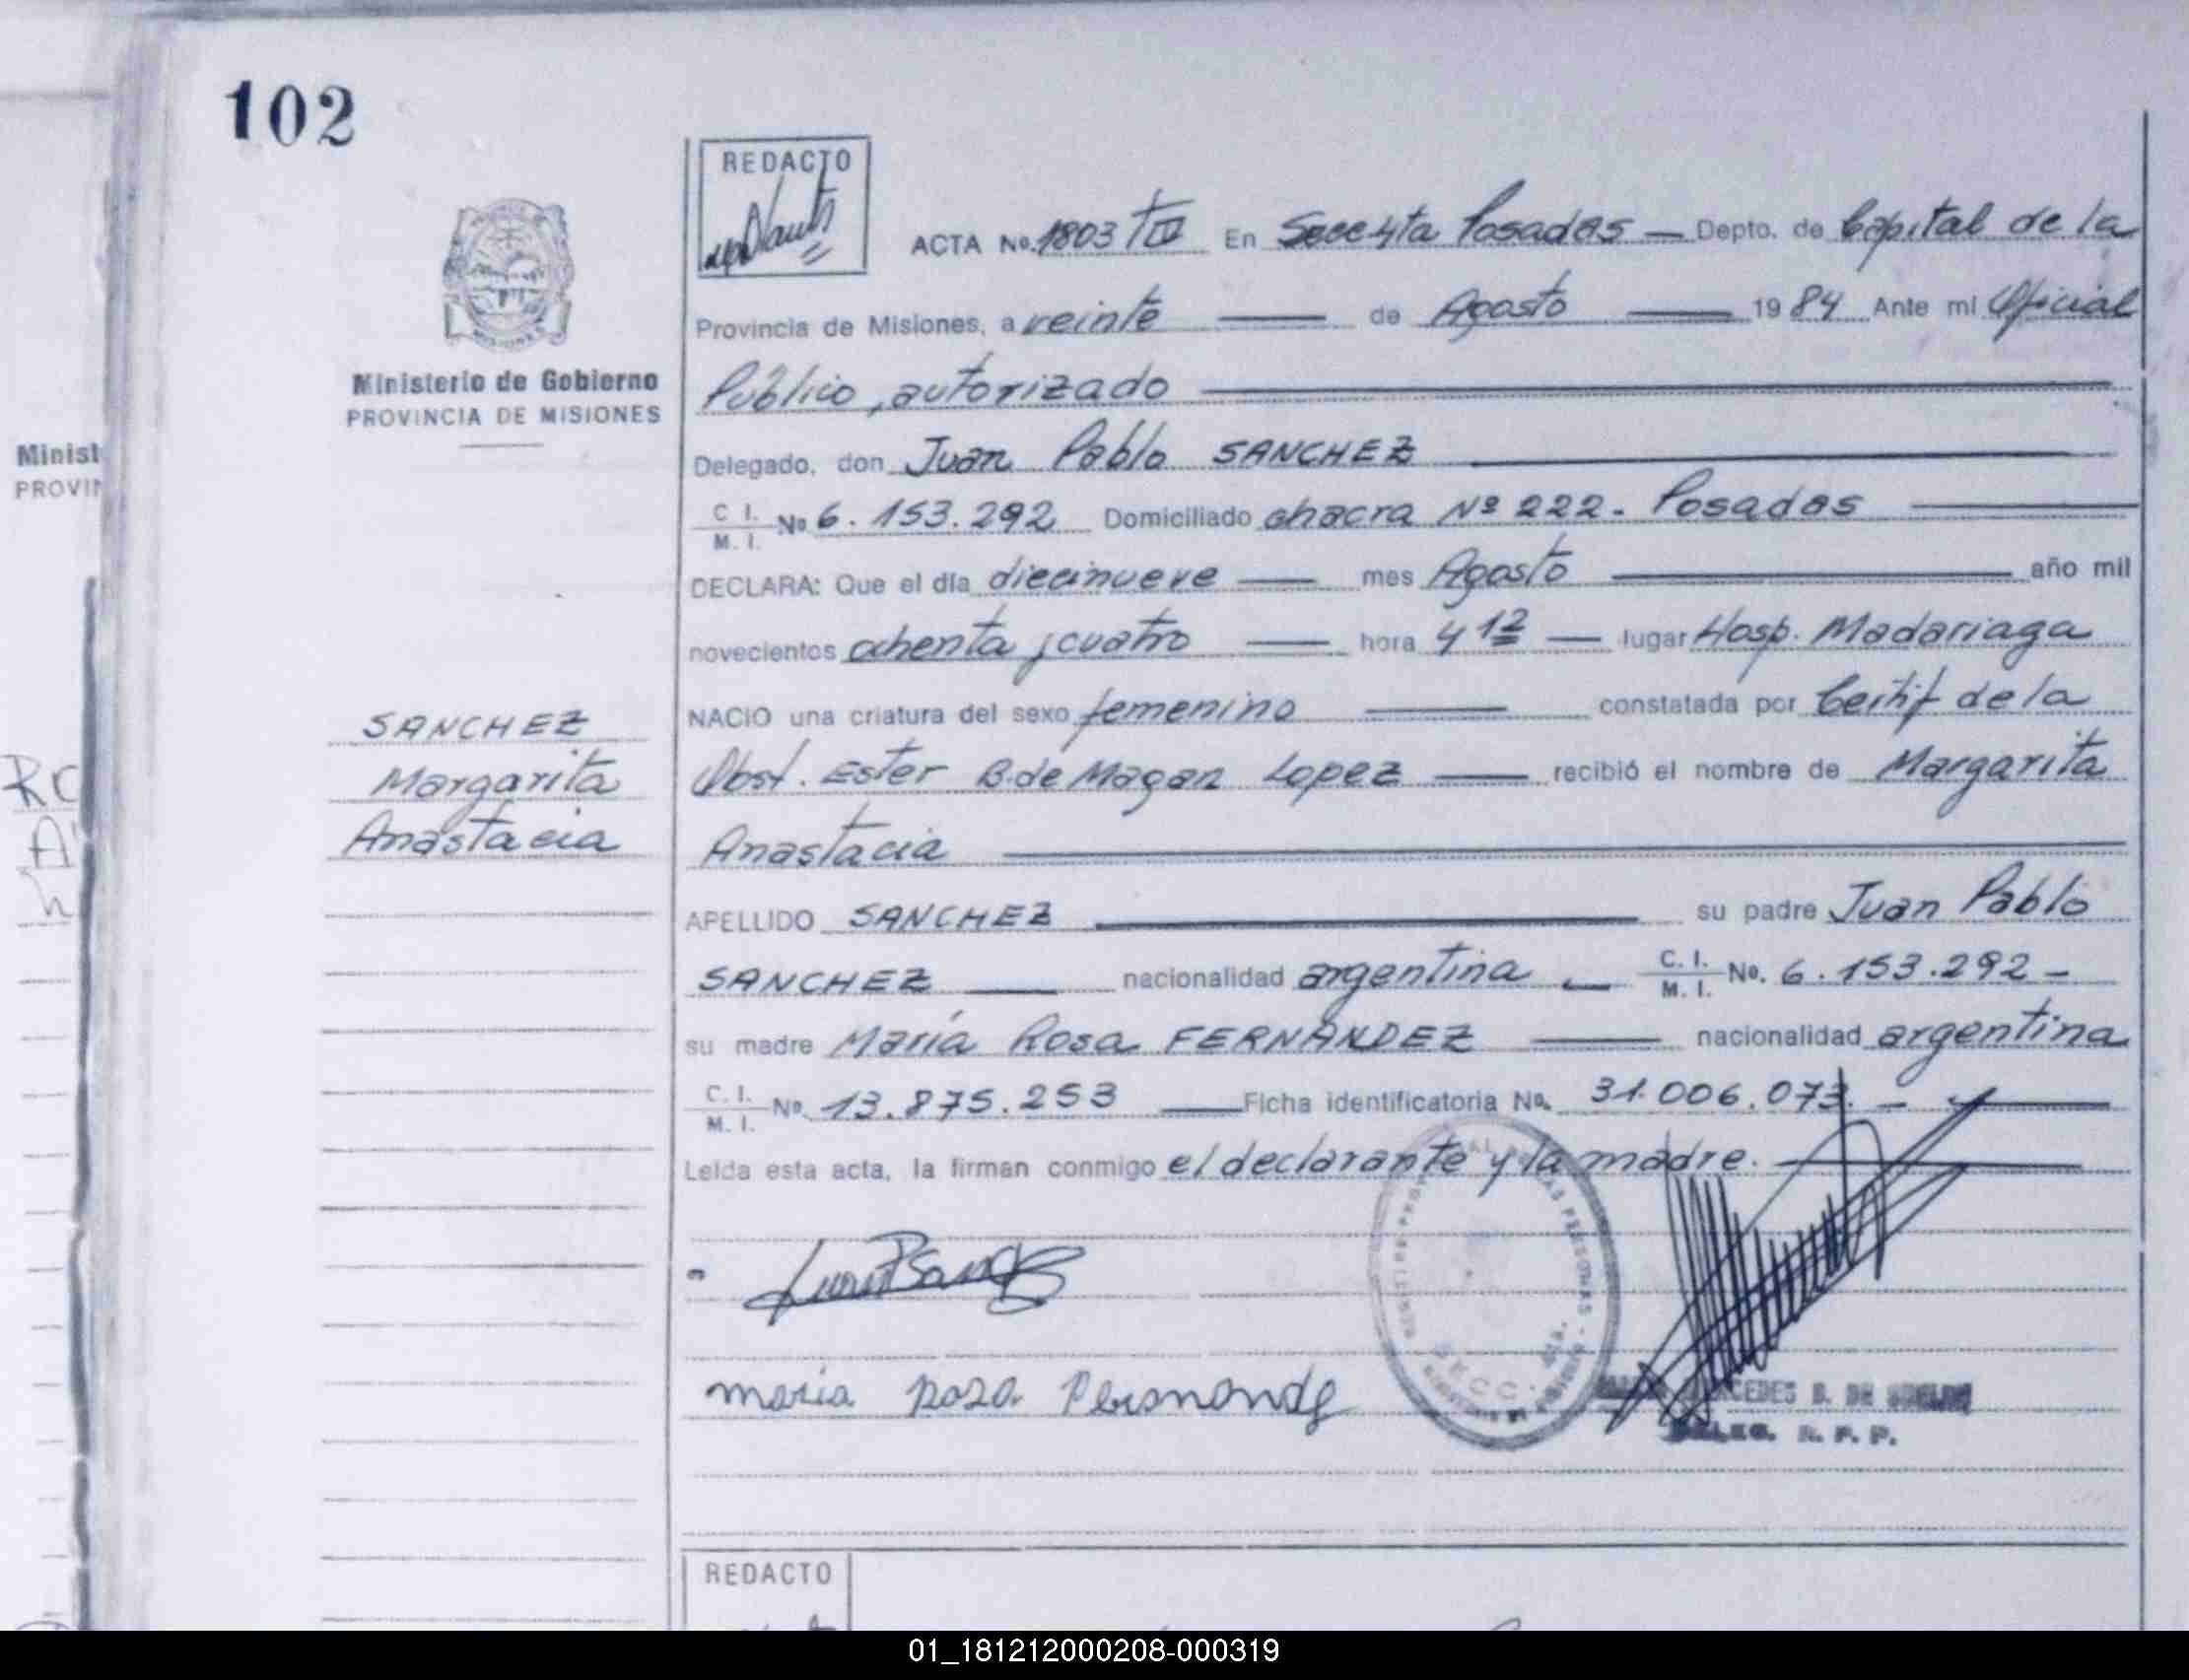 102
REDACTO
ACTA No. 1803 TIV En Secc 4ta Posadas — Depto. de Capital de la
Provincia de Misiones, a veinte — de Agosto — 1984 Ante mi Oficial
Ministerio de Gobierno
PROVINCIA DE MISIONES
Público, autorizado
Delegado, don Juan Pablo SANCHEZ
C. I.
M. I. No 6.153.292 Domiciliado chacra Nº 222. Posadas
DECLARA: Que el día diecinueve — mes Agosto — año mil
novecientos ochenta y cuatro — hora 4 12 — lugar Hosp. Madariaga
NACIO una criatura del sexo femenino — constatada por Certif de la
Obst. Ester B. de Magan Lopez — recibió el nombre de Margarita
Anastacia
SANCHEZ
Margarita
Anastacia
APELLIDO SANCHEZ — su padre Juan Pablo
SANCHEZ — nacionalidad argentina — C. I.
M. I. No. 6.153.292 -
su madre María Rosa FERNANDEZ — nacionalidad argentina
C. I.
M. I. No. 13.875.253 — Ficha identificatoria No. 31.006.073. -
Leida esta acta, la firman conmigo el declarante y la madre.
maria rosa Fernandez
CEDES B. DE
DELEG. R. P. P.
REDACTO
Minist
PROVIN
01_181212000208-000319